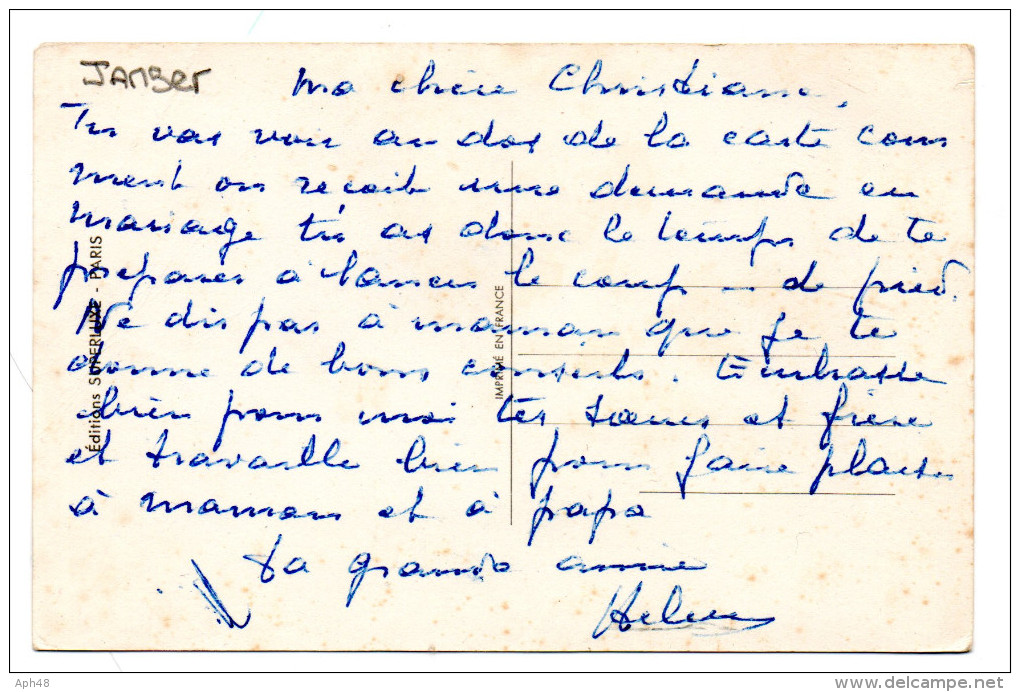 JANSER
Ma chère Christiane,
Tu vas voir au dos de la carte com
ment on reçoit une demande en
mariage tu as donc le temps de te
préparer à lancer le coup — de pied.
Ne dis pas à maman que je te
donne de bons conseils. Embrasse
bien pour moi tes sœurs et frère
et travaille bien pour faire plaisir
à maman et à papa
Ta grande amie
Helene
Éditions SUPERLUXE - PARIS
IMPRIMÉ EN FRANCE
Aph48
www.delcampe.net